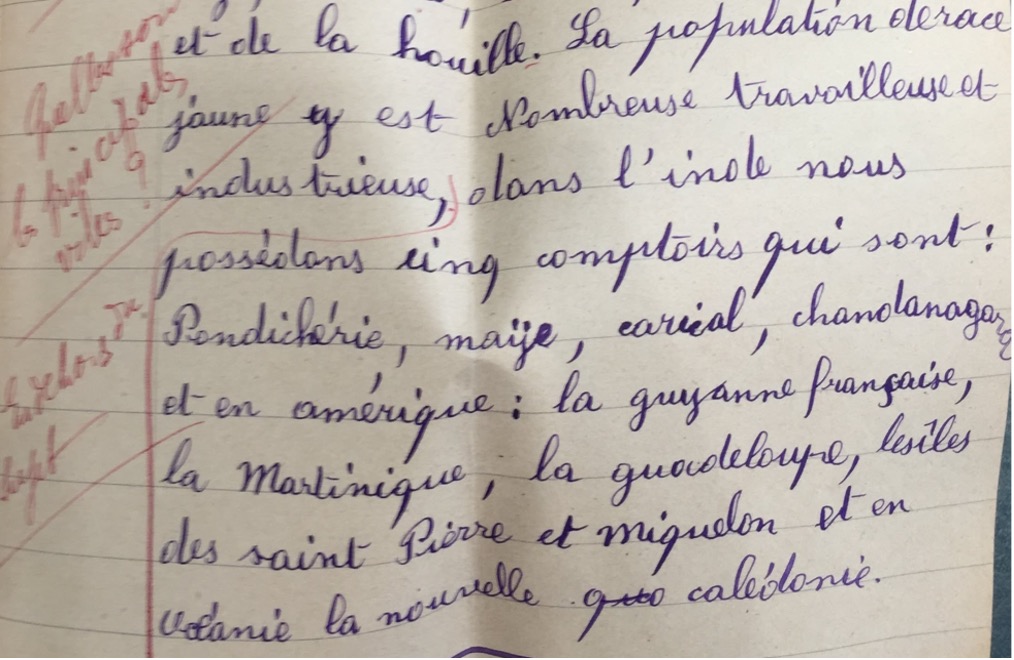 et de la houille. La population de race
jaune y est Nombreuse travailleuse et
industrieuse, dans l'inde nous
possédons cinq comptoirs qui sont:
Pondichérie, maïje, carical, chandanagar
et en amérique: la guyanne française,
la Martinique, la guadeloupe, les îles
des saint Pierre et miquelon et en
océanie la nouvelle calédonie.
les principales
villes?